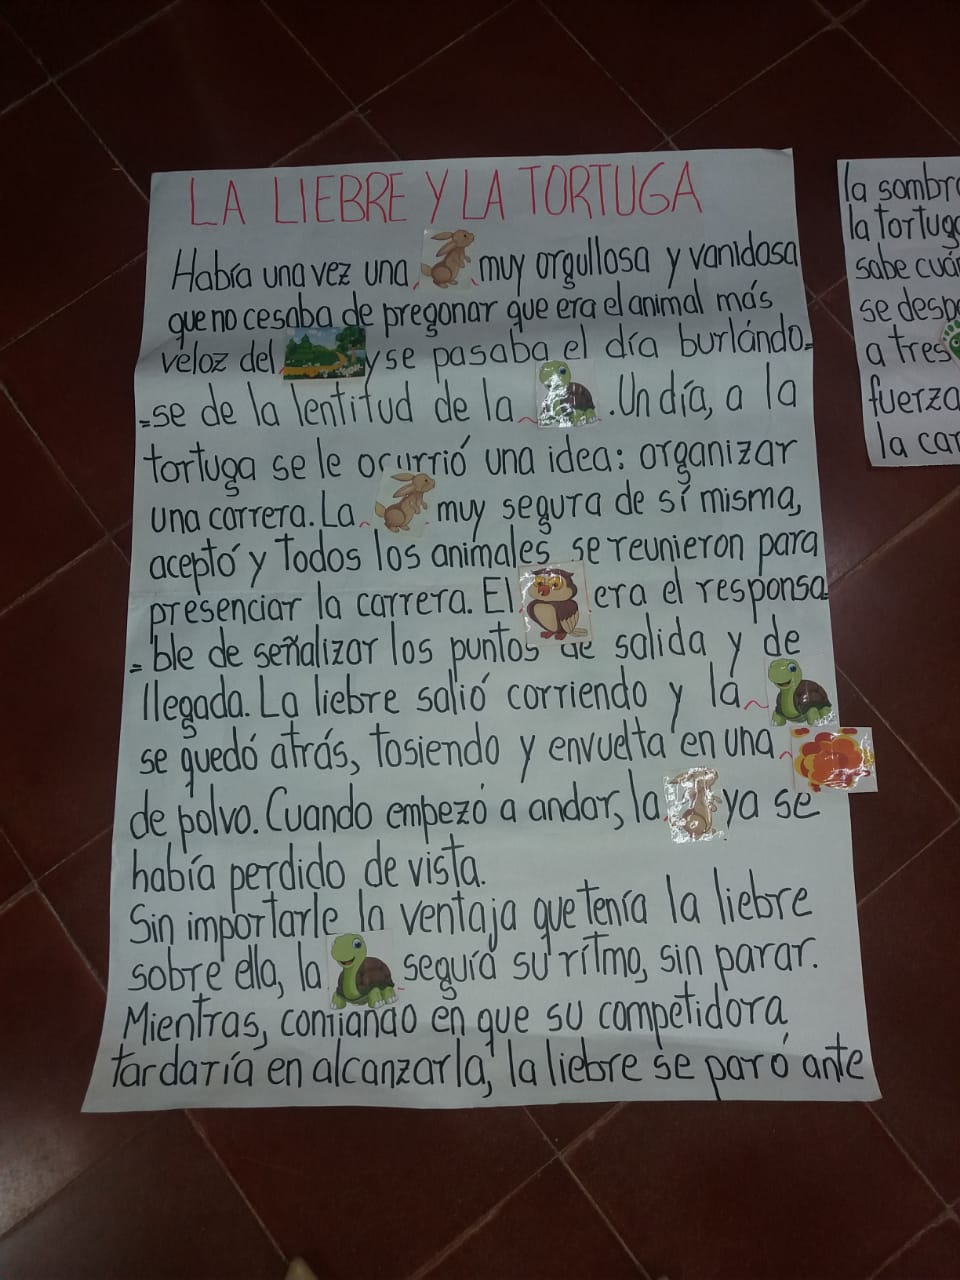 LA LIEBRE Y LA TORTUGA
Había una vez una muy orgullosa y vanidosa
que no cesaba de pregonar que era el animal más
veloz del y se pasaba el día burlándo-
-se de la lentitud de la . Un día, a la
tortuga se le ocurrió una idea: organizar
una carrera. La muy segura de sí misma,
aceptó y todos los animales se reunieron para
presenciar la carrera. El era el responsa-
-ble de señalizar los puntos de salida y de
llegada. La liebre salió corriendo y la
se quedó atrás, tosiendo y envuelta en una
de polvo. Cuando empezó a andar, la ya se
había perdido de vista.
Sin importarle la ventaja que tenía la liebre
sobre ella, la seguía su ritmo, sin parar.
Mientras, confiando en que su competidora
tardaría en alcanzarla, la liebre se paró ante
la sombr
la tortug
sabe cuá
se desp
a tres
fuerza
la car